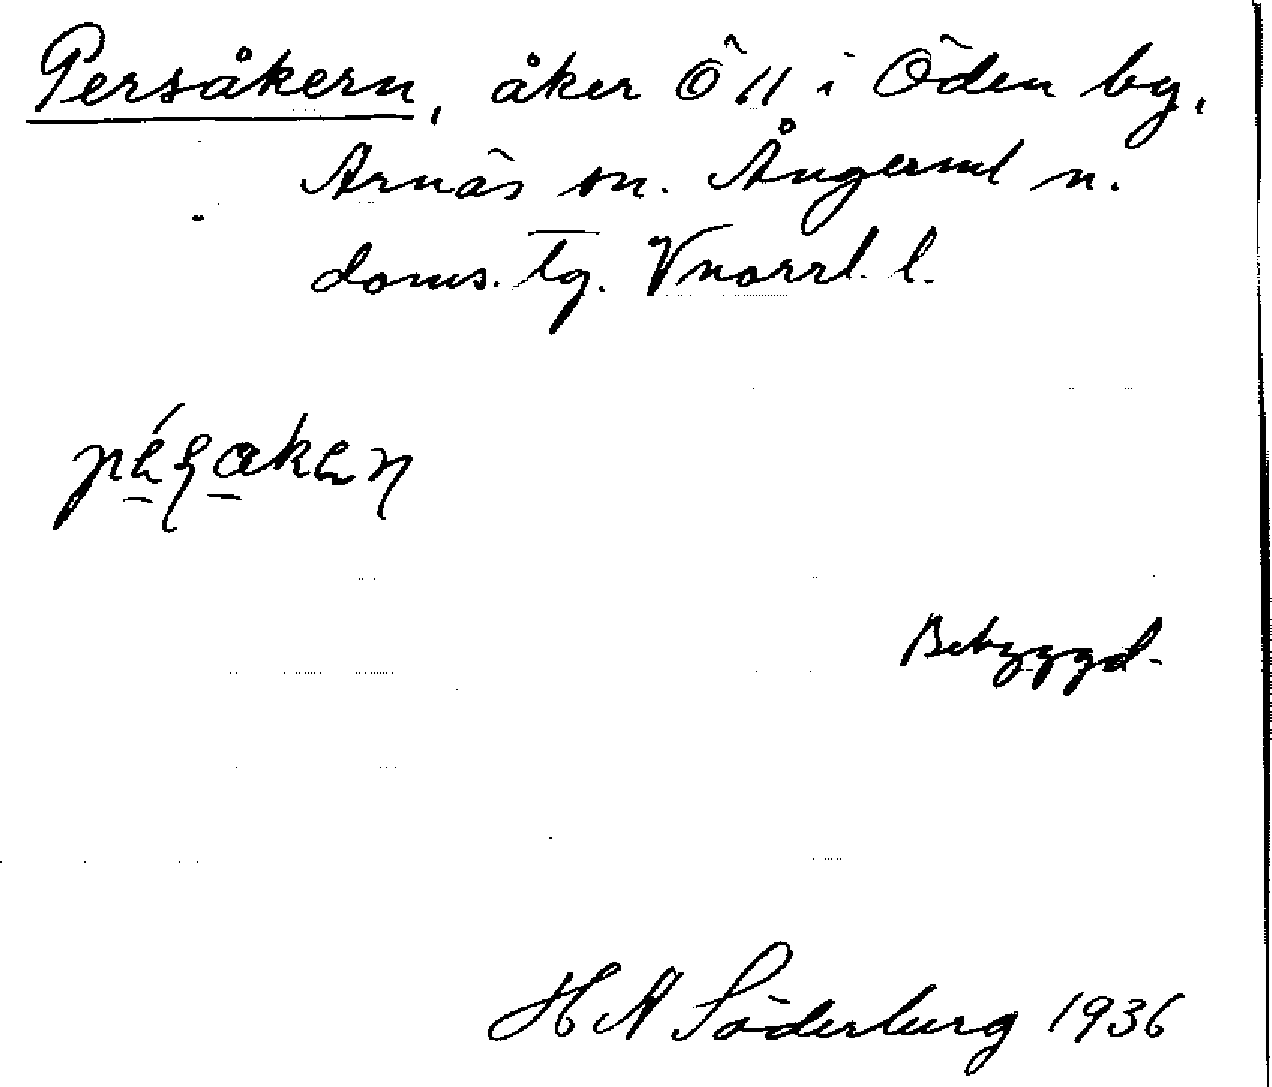 Persåkern, åker Ö 11 i Öden by.
Arnäs sn. Ångerml n.
doms. tg. Vnorrl. l.
Bebyggd.
H A Söderberg 1936